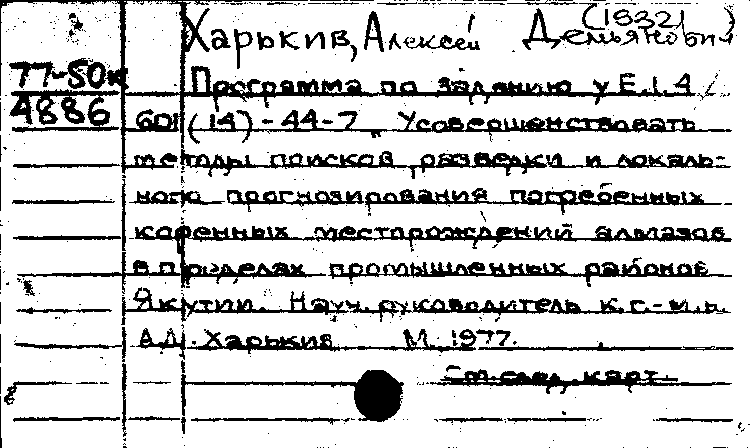 (1932)
Харькив, Алексей Демьянович
77-50к Программа по заданию у Е.I.4
4886 601 (14)-44-7 „Усовершенствовать
методы поисков, разведки и локаль-
ного прогнозирования погребенных
коренных месторождений алмазов
в пределах промышленных районов
Якутии. Науч. руководитель к.г.-м.н.
А.Д. Харькив М. 1977.
См. след. карт.